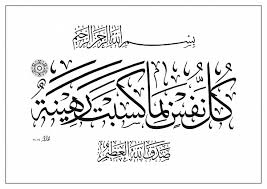 بسم الله الرحمن الرحيم
كُلُّ نَفْسٍ بِمَا كَسَبَتْ رَهِينَةٌ
صدق الله العظيم